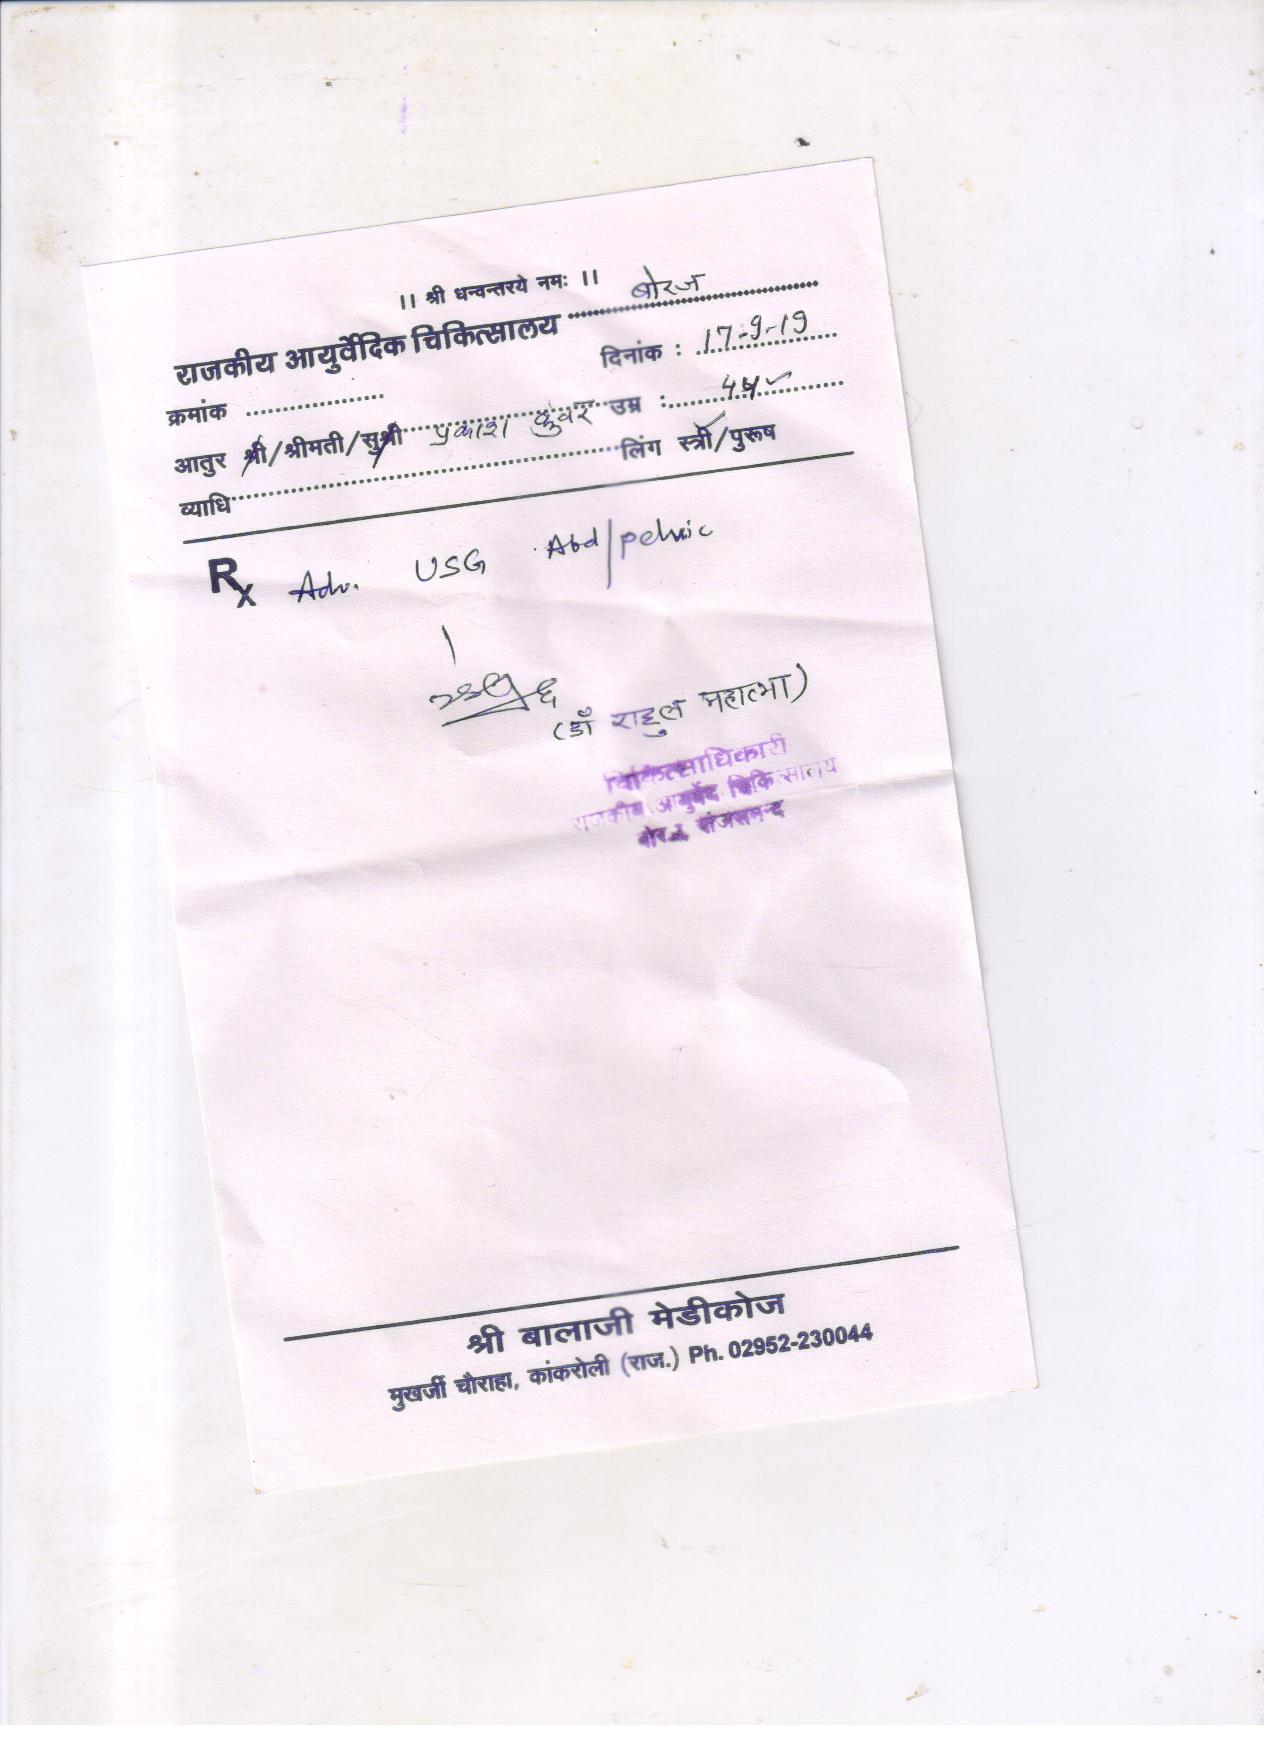 ।। श्री धन्वन्तरये नमः ।।
राजकीय आयुर्वेदिक चिकित्सालय बोरज
क्रमांक दिनांक : 17-9-19
आतुर श्री/श्रीमती/सुश्री प्रकाश कुंवर उम्र :
व्याधि लिंग स्त्री/पुरूष
Rx Adv. USG Abd/pelvic
(डॉ राहुल महात्मा)
चिकित्साधिकारी
राजकीय आयुर्वेद चिकित्सालय
राजसमन्द
श्री बालाजी मेडीकोज
मुखर्जी चौराहा, कांकरोली (राज.) Ph. 02952-230044